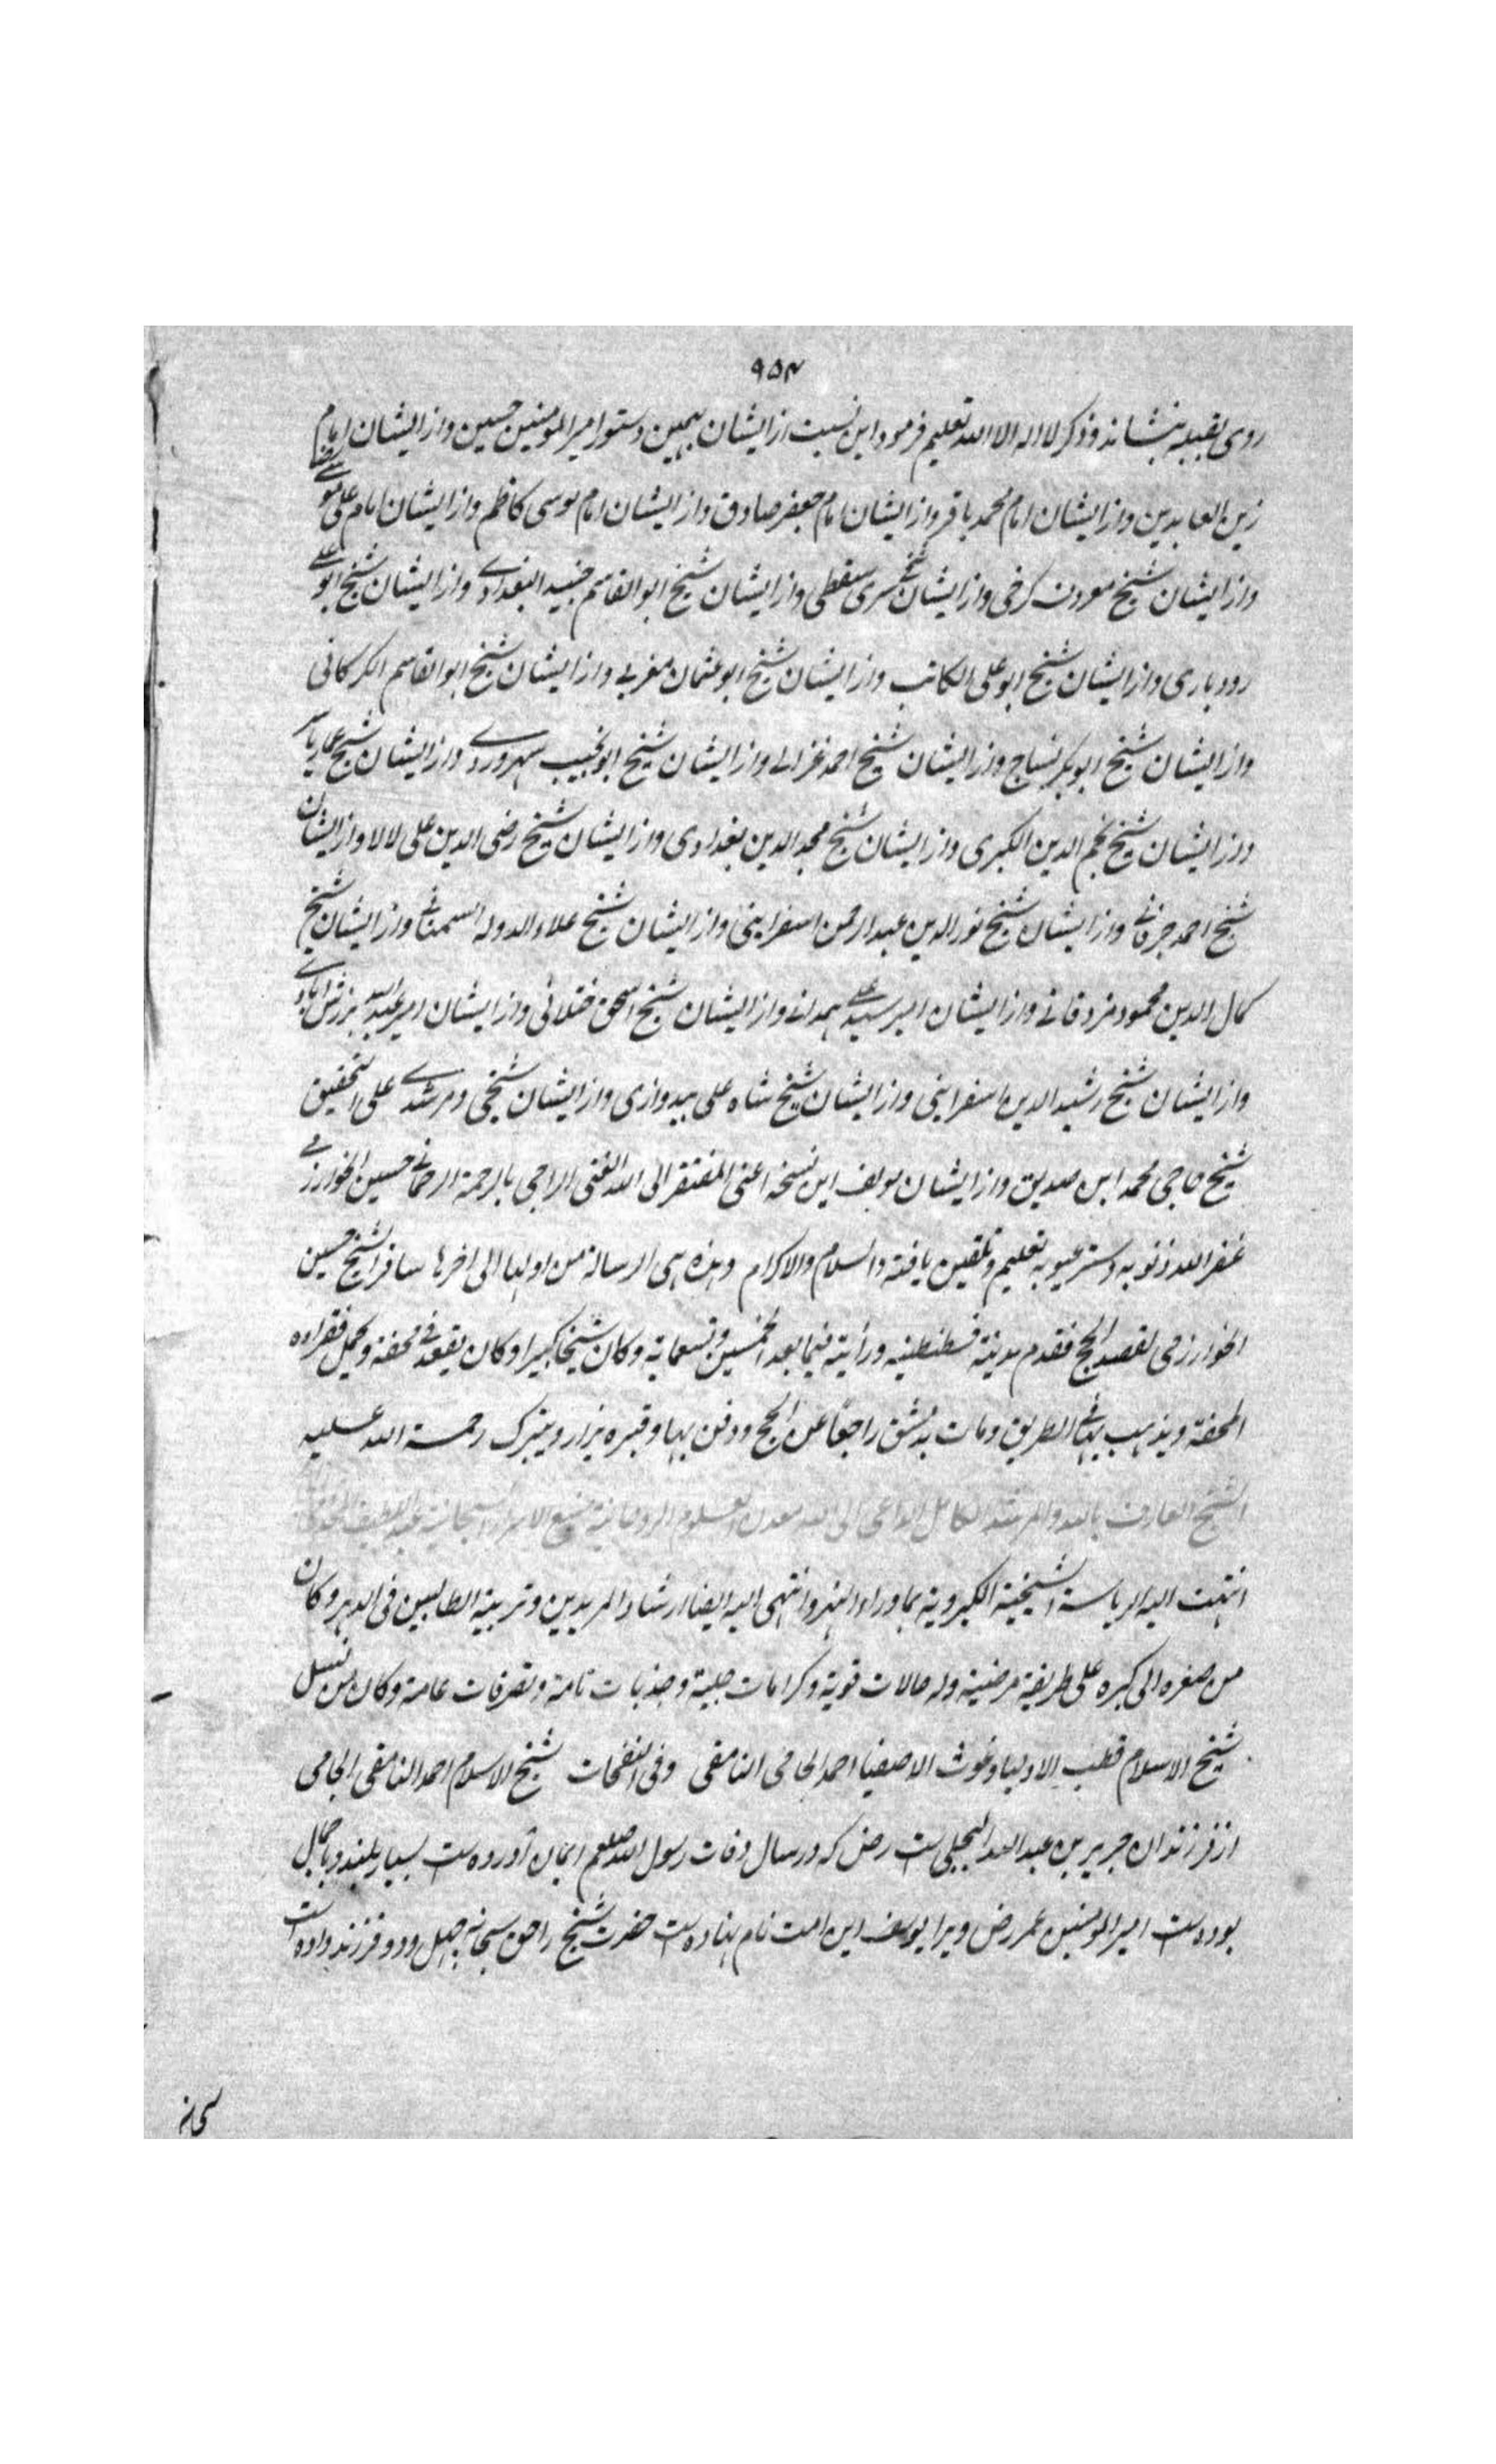 ٩٥٤
روی بقبیله بنشاند و ذکر لا اله الا الله تعلیم فرمود این نسبت از ایشان بهمین دستور امیر المومنین حسین و از ایشان امام
زین العابدین و از ایشان امام محمد باقر و از ایشان امام جعفر صادق و از ایشان امام موسی کاظم و از ایشان امام علی موسی رضا
و از ایشان شیخ معروف کرخی و از ایشان شیخ سری سقطی و از ایشان شیخ ابو القاسم جنید البغدادی و از ایشان شیخ ابو علی
رودباری و از ایشان شیخ ابو علی الکاتب و از ایشان شیخ ابو عثمان مغربی و از ایشان شیخ ابو القاسم الکرکانی
و از ایشان شیخ ابوبکر نساج و از ایشان شیخ احمد غزالی و از ایشان شیخ ابو نجیب سهروردی و از ایشان شیخ عمار یاسر
و از ایشان شیخ نجم الدین الکبری و از ایشان شیخ مجد الدین بغدادی و از ایشان شیخ رضی الدین علی لالا و از ایشان
شیخ احمد جرفانی و از ایشان شیخ نور الدین عبد الرحمن اسفراینی و از ایشان شیخ علاء الدوله السمنانی و از ایشان شیخ
کمال الدین محمود مزدقانی و از ایشان امیر سید علی همدانی و از ایشان شیخ اسحق ختلانی و از ایشان امیر عبد الله برزش آبادی
و از ایشان شیخ رشید الدین اسفراینی و از ایشان شیخ شاه علی بیدوازی و از ایشان شیخی و مرشدی علی التحقیق
شیخ حاجی محمد ابن صدیق و از ایشان مولف این نسخه اعنی المفتقر الی الله الغنی الراجی بالرحمة الرحمانی حسین الخوارزمی
غفر الله ذنوبه و ستر عیوبه تعلیم و تلقین یافته والسلام والاکرام وهذه هی الرسالة من اولها الی اخرها سافر الشیخ حسین
الخوارزمی لقصد الحج فقدم مدینة قسطنطینیه ورأیته فیما بعد الخمسین وتسعمایة وکان شیخا کبیرا وکان یقعد فی محفة ویحمل فقراءه
المحفة ویذهب بها فی الطریق ومات بدمشق راجعا عن الحج ودفن بها وقبره یزار ویتبرک رحمة الله علیه
الشیخ العارف بالله والمرشد الکامل الداعی الی الله معدن العلوم الروحانیة منبع الاسرار السبحانیة عبد اللطیف الجامی
انتهت الیه الریاسة الشیخیة الکبرویة بماوراء النهر وانتهی الیه ایضا ارشاد المریدین وتربیة الطالبین فی الدهر وکان
من صغره الی کبره علی طریقة مرضیة وله حالات قویة وکرامات جلیة وجذبات تامة وتصرفات عامة وکان من نسل
شیخ الاسلام قطب الاولیا وغوث الاصفیا احمد الجامی النامقی وفی النفحات شیخ الاسلام احمد النامقی الجامی
از فرزندان جریر بن عبد الله البجلی ست رض که در سال وفات رسول الله صلعم ایمان آورده ست بسیار بلند و با جمال
بوده ست امیر المومنین عمر رض ویرا یوسف این امت نام نهاده ست حضرت شیخ را حق سبحانه چهل و دو فرزند داده است